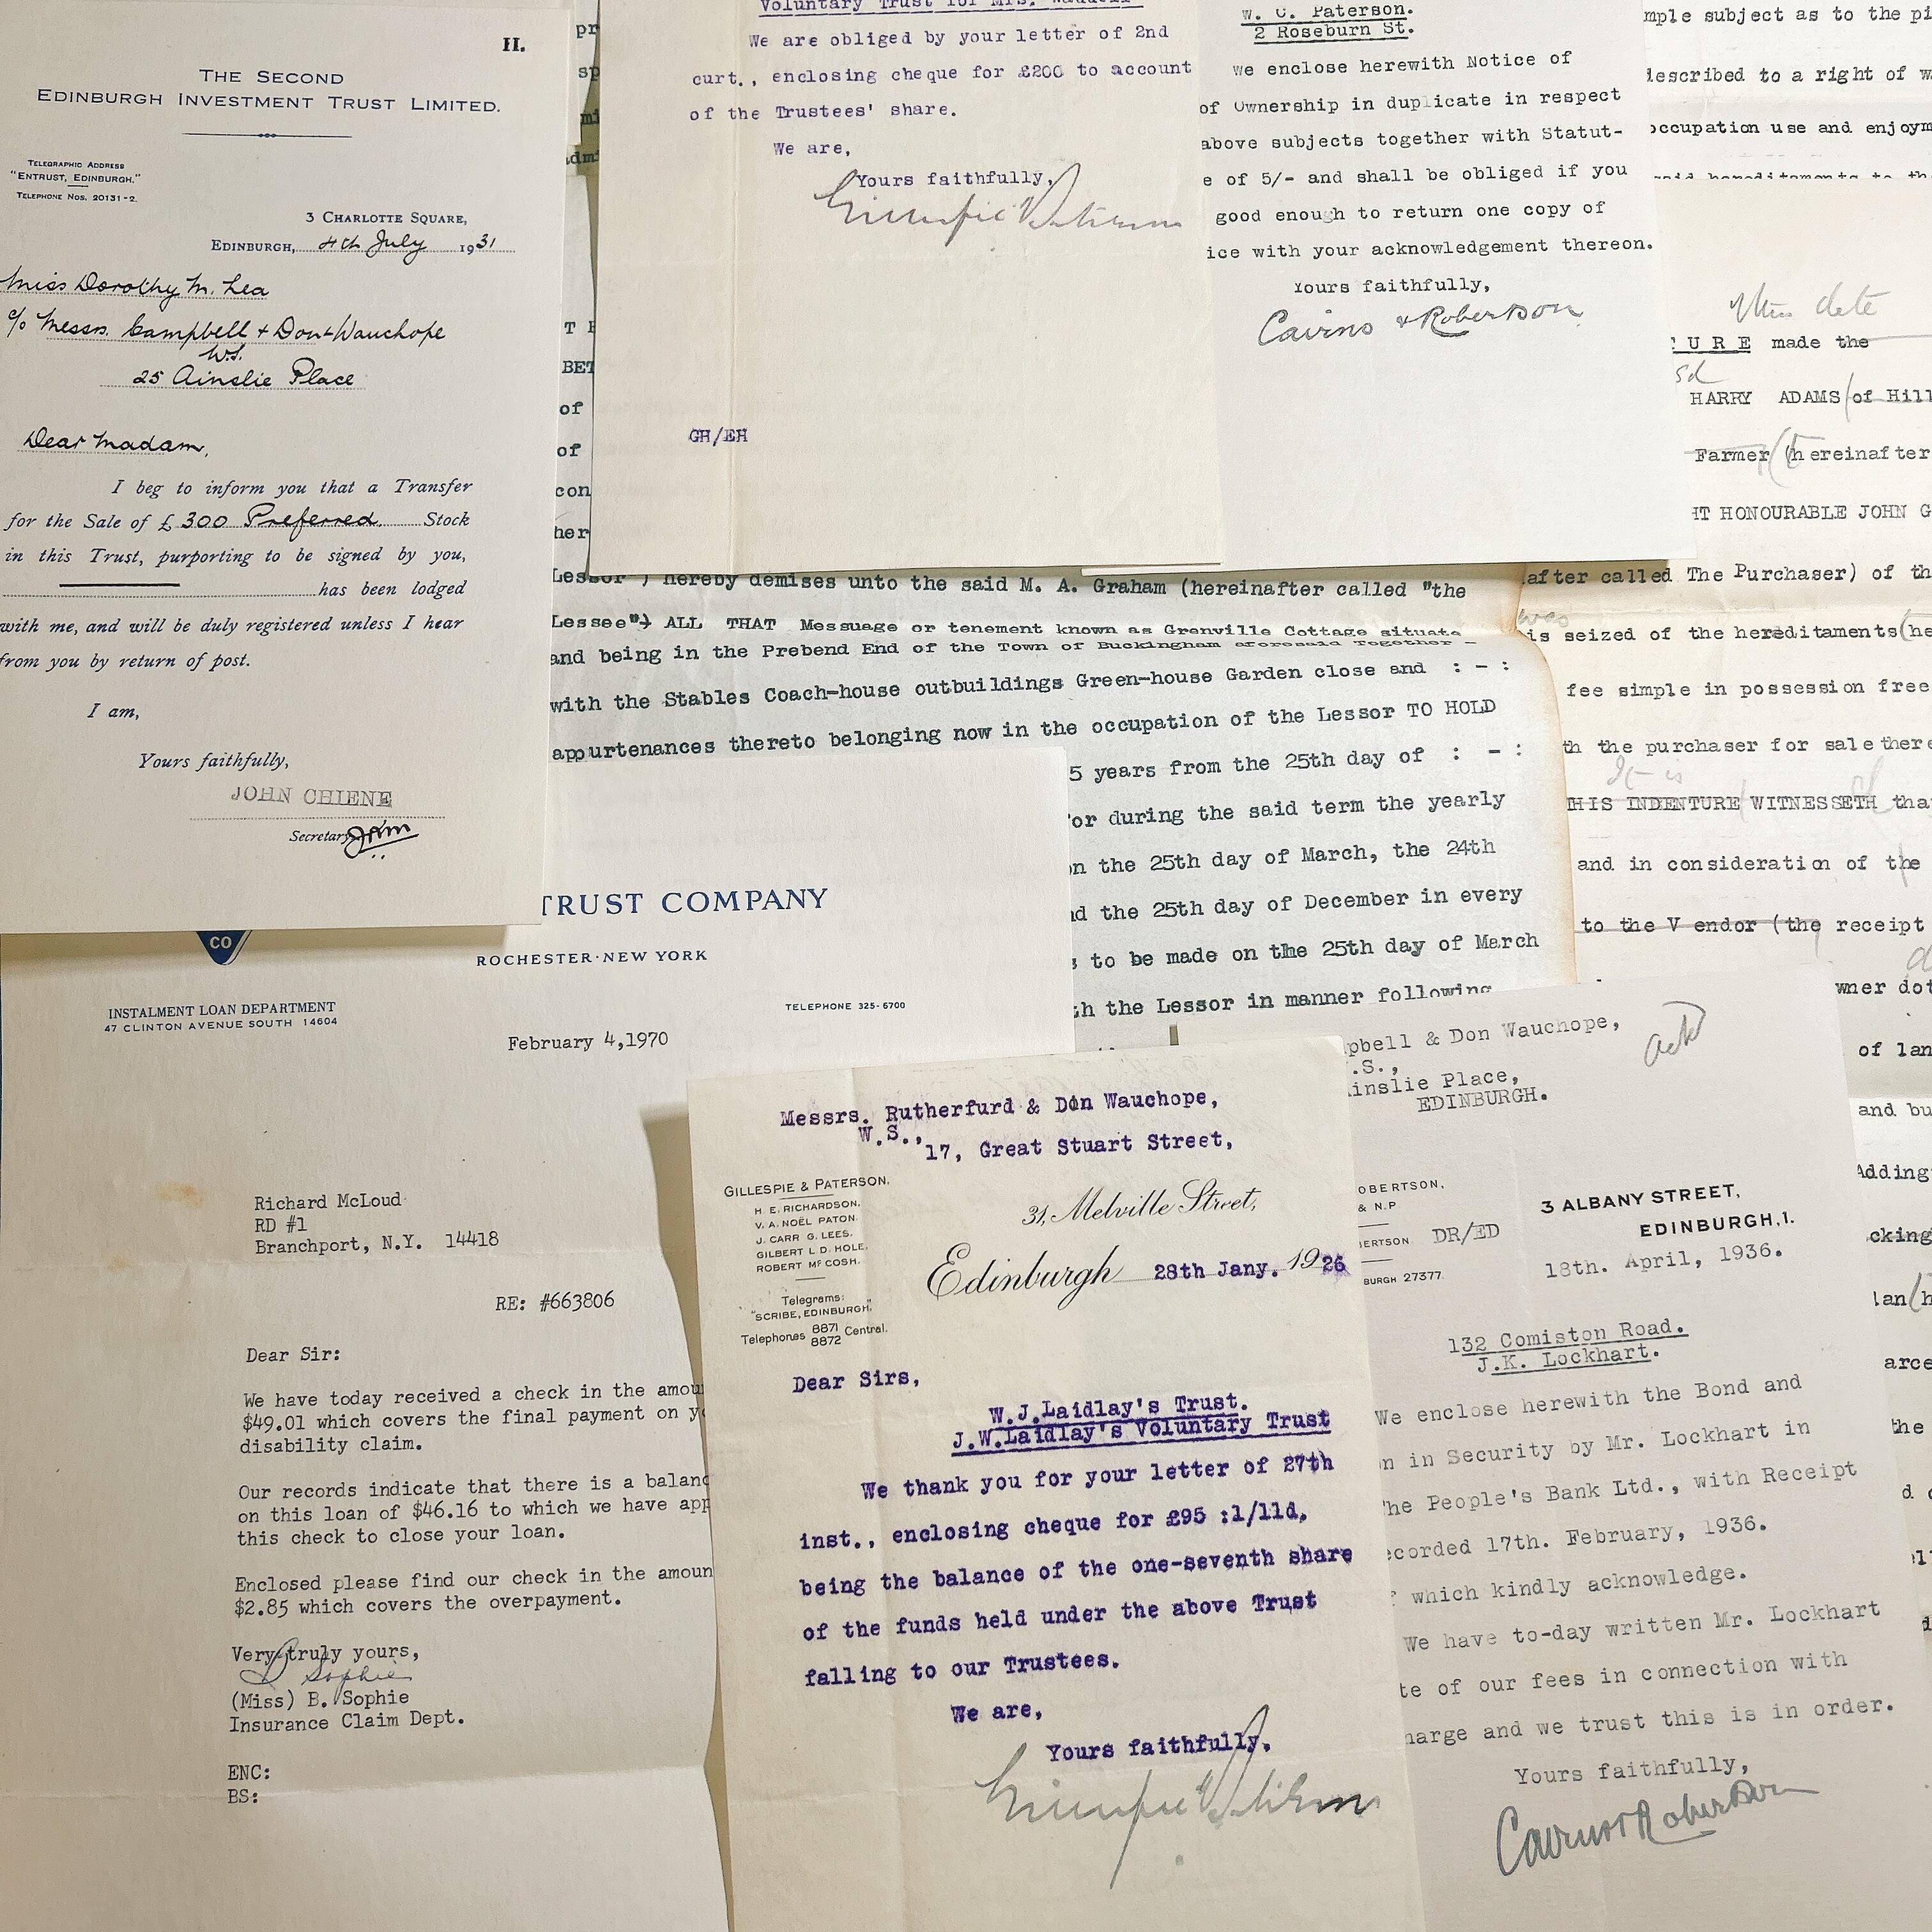 H.
THE SECOND
EDINBURGH INVESTMENT TRUST LIMITED.
TELEGRAPHIC ADDRESS
"ENTRUST, EDINBURGH."
TELEPHONE NOS. 20131-2.
3 CHARLOTTE SQUARE,
EDINBURGH, 4th July 1931
Miss Dorothy M. Lea
c/o Messrs. Campbell & Don Wauchope
W.S.
25 Ainslie Place
Dear Madam,
I beg to inform you that a Transfer
for the Sale of £ 300 Preferred. Stock
in this Trust, purporting to be signed by you,
has been lodged
with me, and will be duly registered unless I hear
from you by return of post.
I am,
Yours faithfully,
JOHN CHIENE
Secretary
Voluntary Trust for Mrs. Waddell
We are obliged by your letter of 2nd
curt., enclosing cheque for £200 to account
of the Trustees' share.
We are,
Yours faithfully,
Gillespie & Paterson
GH/EH
W. C. Paterson.
2 Roseburn St.
We enclose herewith Notice of
of Ownership in duplicate in respect
above subjects together with Statut-
e of 5/- and shall be obliged if you
good enough to return one copy of
ice with your acknowledgement thereon.
Yours faithfully,
Cairns & Robertson
mple subject as to the pi
described to a right of w
occupation use and enjoym
said hereditaments to the
This date
URE made the
sd
HARRY ADAMS (of Hill
Farmer (hereinafter
HT HONOURABLE JOHN G
after called The Purchaser) of th
was
is seized of the hereditaments (he
fee simple in possession free
th the purchaser for sale there
It is
THIS INDENTURE WITNESSETH tha
and in consideration of the
to the Vendor (the receipt
wner dot
of lan
and bu
Adding
cking
lan (h
arce
the
pr
sp
T
BET
of
of
con
her
Lessor") hereby demises unto the said M. A. Graham (hereinafter called "the
Lessee") ALL THAT Messuage or tenement known as Grenville Cottage situate
and being in the Prebend End of the Town of Buckingham aforesaid Together -
with the Stables Coach-house outbuildings Green-house Garden close and : - :
appurtenances thereto belonging now in the occupation of the Lessor TO HOLD
5 years from the 25th day of : - :
or during the said term the yearly
on the 25th day of March, the 24th
nd the 25th day of December in every
s to be made on the 25th day of March
th the Lessor in manner following
CO
TRUST COMPANY
ROCHESTER·NEW YORK
INSTALMENT LOAN DEPARTMENT
47 CLINTON AVENUE SOUTH 14604
TELEPHONE 325-6700
February 4,1970
Richard McLoud
RD #1
Branchport, N.Y. 14418
RE: #663806
Dear Sir:
We have today received a check in the amou
$49.01 which covers the final payment on y
disability claim.
Our records indicate that there is a balanc
on this loan of $46.16 to which we have app
this check to close your loan.
Enclosed please find our check in the amoun
$2.85 which covers the overpayment.
Very truly yours,
B Sophie
(Miss) B. Sophie
Insurance Claim Dept.
ENC:
BS:
Messrs. Rutherfurd & Don Wauchope,
W.S.,
17, Great Stuart Street,
GILLESPIE & PATERSON.
H. E. RICHARDSON.
V. A. NOËL PATON.
J. CARR G. LEES.
GILBERT L. D. HOLE.
ROBERT McCOSH.
Telegrams:
"SCRIBE, EDINBURGH."
Telephones 8871
8872 Central.
31, Melville Street,
Edinburgh 28th Jany. 1926
Dear Sirs,
W.J.Laidlay's Trust.
J.W.Laidlay's Voluntary Trust
We thank you for your letter of 27th
inst., enclosing cheque for £95 :1/11d,
being the balance of the one-seventh share
of the funds held under the above Trust
falling to our Trustees.
We are,
Yours faithfully,
Gillespie & Paterson
pbell & Don Wauchope,
.S.,
inslie Place,
EDINBURGH.
ackd
OBERTSON,
& N.P
ERTSON. DR/ED
BURGH 27377
3 ALBANY STREET,
EDINBURGH,1.
18th. April, 1936.
132 Comiston Road.
J.K. Lockhart.
We enclose herewith the Bond and
n in Security by Mr. Lockhart in
The People's Bank Ltd., with Receipt
ecorded 17th. February, 1936.
f which kindly acknowledge.
We have to-day written Mr. Lockhart
te of our fees in connection with
harge and we trust this is in order.
Yours faithfully,
Cairns & Robertson